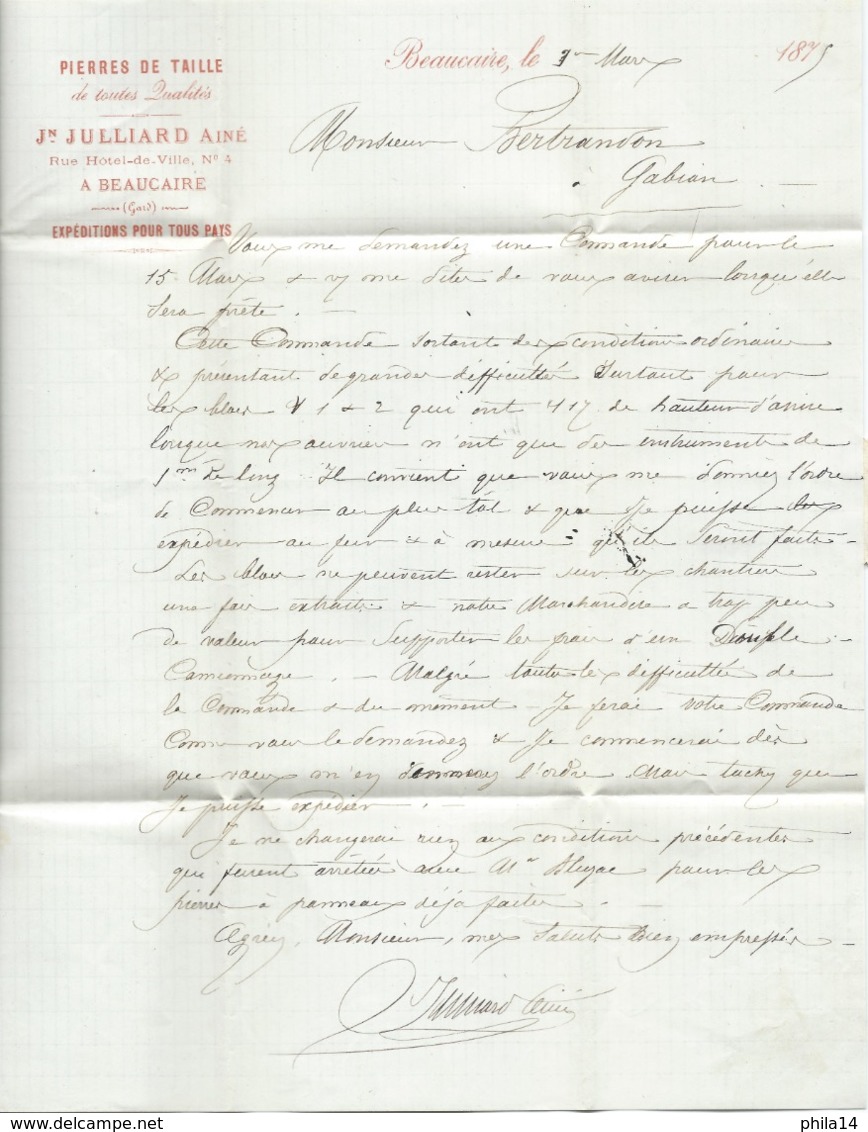 PIERRES DE TAILLE
de toutes Qualités
JN JULLIARD AINÉ
Rue Hôtel-de-Ville, No 4
A BEAUCAIRE
(Gard)
EXPÉDITIONS POUR TOUS PAYS
Beaucaire, le Mars 1875
Monsieur Bertrandon
Gabian
Vous me demandez une Commande pour le
15 Mars & me dites de vous aviser lorsqu'elle
sera prête.
Cette Commande sortant des conditions ordinaires
& présentant de grandes difficultés surtout pour
les blocs 1 & 2 qui ont de hauteur d'assise
lorsque nos ouvriers n'ont que des instruments de
1m de long Il convient que vous me donniez l'ordre
de Commencer au plus tôt & que je puisse les
expédier au fur & à mesure qu'ils seront faits
Les blocs ne peuvent rester sur les chantiers
une fois extraits & notre Marchandise a trop peu
de valeur pour supporter les frais d'un Double
Camionnage. Malgré toutes les difficultés de
la Commande & du moment Je ferai votre Commande
Comme vous le demandez & Je commencerai dès
que vous m'en donnerez l'ordre Mais tachez que
Je puisse expédier.
Je ne changerai rien aux conditions précédentes
qui furent arrêtées avec Mr pour les
pierres à panneaux déjà faites.
Agréez, Monsieur, mes Saluts bien empressés
Julliard Ainé
phila14